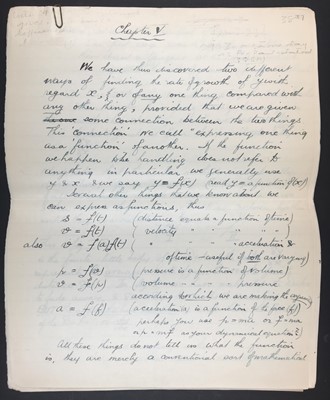 Chapter V
We have thus discovered two different
ways of finding the rate of growth of y with
regard x, & or of any one thing compared with
any other thing, provided that we are given
some connection between the two things
This 'connection' we call "expressing one thing
as a 'function' of another. If the function
we happen to be handling does not refer to
anything in particular we generally use
y & x & we say y = f(x) read y is a function of (x)
Several other things that we know about we
can express as functions, thus
s = f(t) (distance equals a function of time)
v = f(t) (velocity " " " "
also v = f(a)f(t) ( " " " " acceleration &
of time - careful if both are varying)
p = f(v) (pressure is a function of volume)
v = f(p) (volume " " " pressure
according to which we are making the
a = f(f) (acceleration is a function of the force (f)
perhaps you use p = ma or f = ma
or p = mf as your dynamical equation?)
All these things do not tell us what the function
is, they are merely a conventional sort of mathematical